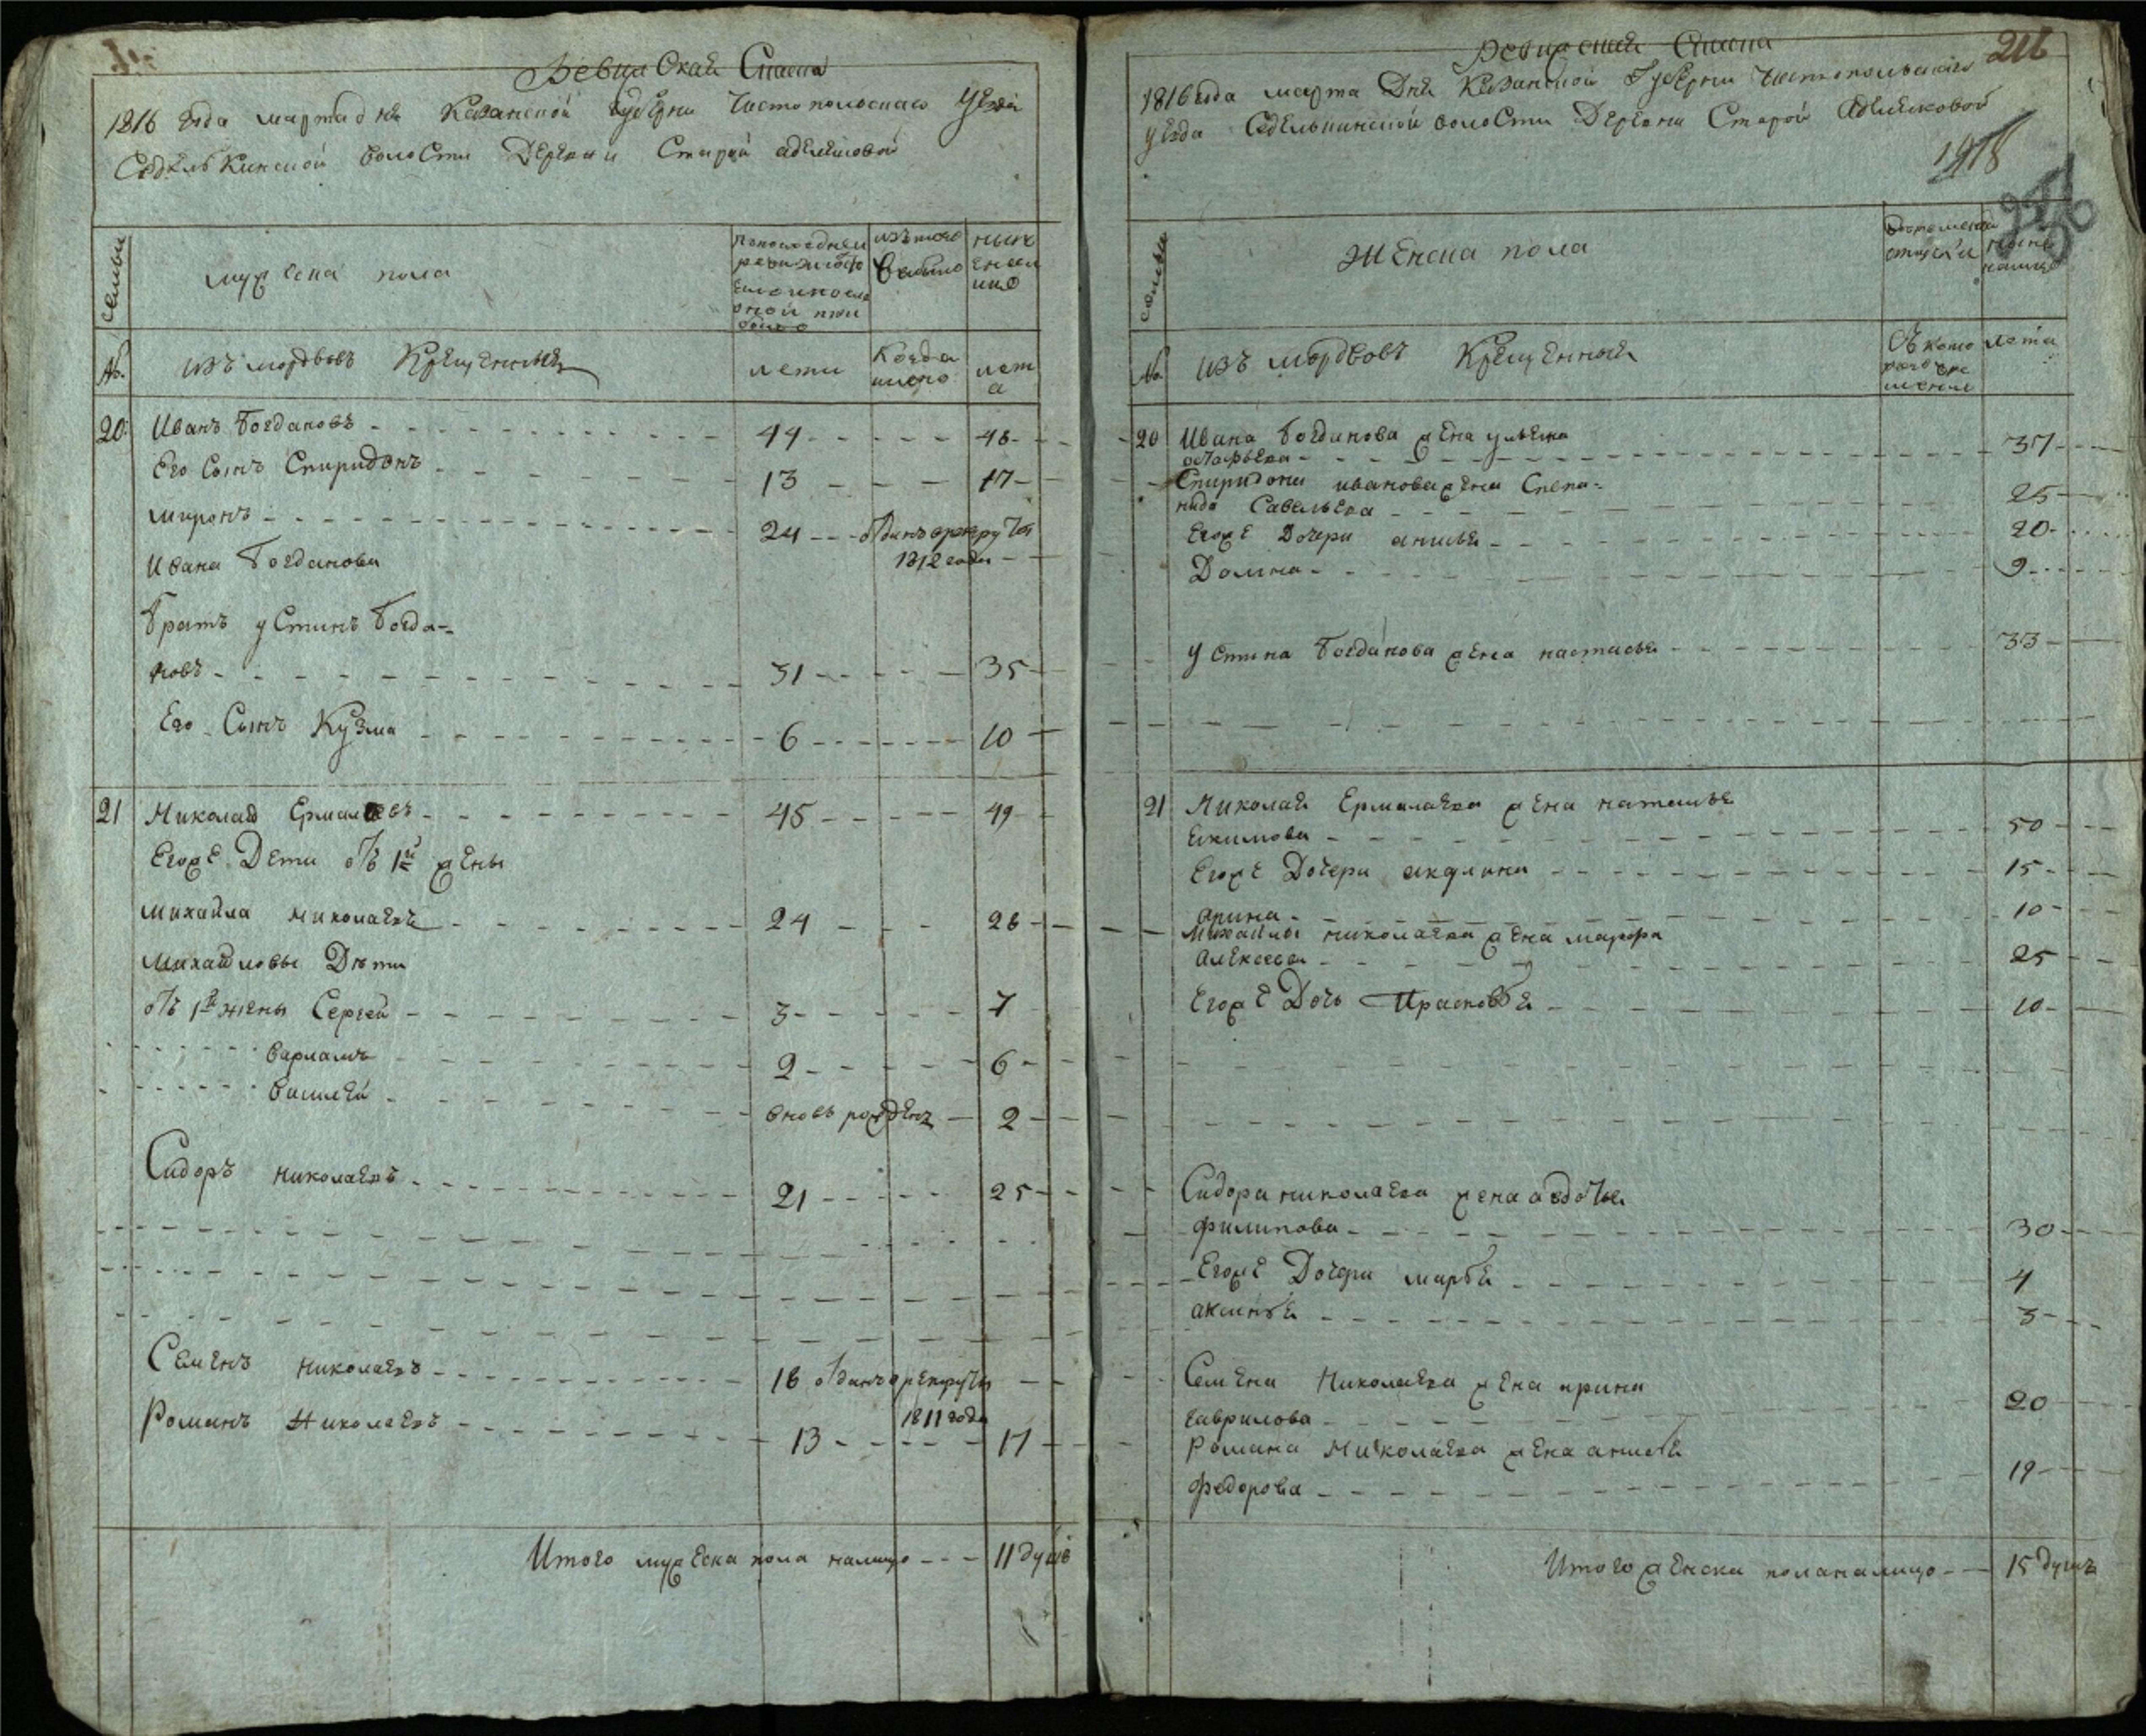 Ревизская Скаска
1816 года марта дня Казанской губерни Чистопольскаго уезда
Седелькинской волости Деревни Старой адамсковой
семьи
мужеска пола
из того
выбыло
ныне
№.
изъ мордвовъ Крещенныхъ
лети
Когда
имено
лета
20. Иванъ Богдановъ 44 48
Его Сынъ Спиридонъ 13 17
миронъ 24 отданъ в рекруты
Ивана Богданова 1812 года
братъ устинъ богда=
новъ 31 35
Его Сынъ Кузма 6 10
21 Николай Ермалаевъ 45 49
Егоже Дети отъ 1й жены
михайла николаевъ 24 28
михайловы Дети
отъ 1й жены Сергей 3 7
варламъ 2 6
василей вновь рожденъ 2
Сидоръ николаевъ 21 25
Семенъ николаевъ 18 отданъ в рекруты
1811 года
Романъ Николаевъ 13 17
Итого мужеска пола налицо 11 душъ
Ревизская Скаска 216
1816 года марта Дня Казанской Губерни Чистопольскаго
уезда Седелькинской волости Деревни Старой
семьи
Женска пола
ныне
налицо
№.
изъ мордвовъ Крещенныхъ
лета
20 Ивана богданова жена ульяна
остафьева 37
Спиридона иванова жена Степа=
нида Савельева 25
Егоже Дочери анисья 20
Домна 9
устина богданова жена настасья 33
21 Николая Ермалаева жена наталья
екимова 50
Егоже Дочери акулина 15
арина 10
михайлы николаева жена марфа
алексеева 25
Егоже Дочь Прасковья 10
Сидора николаева жена авдотья
филипова 30
Егоже Дочери марья 4
аксинья 3
Семена Николаева жена ирина
гаврилова 20
Романа Николаева жена анисья
федорова 19
Итого женска пола налицо 15 душъ